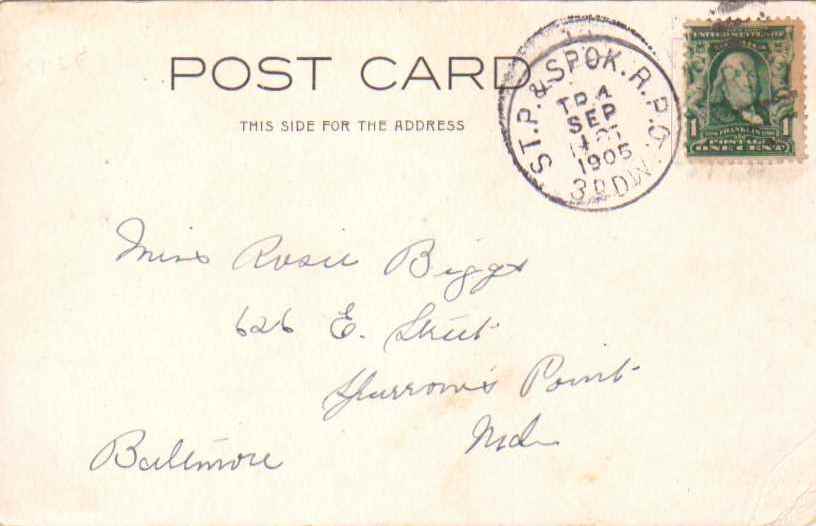 POST CARD
THIS SIDE FOR THE ADDRESS
ST.P.&SPOK.R.P.O.
TR.4
SEP
1905
3RD DIV
UNITED STATES OF
FRANKLIN
1 1
POSTAGE
ONE CENT
Miss Rosie Biggs
626 E. Street
Sparrows Point
Md
Baltimore